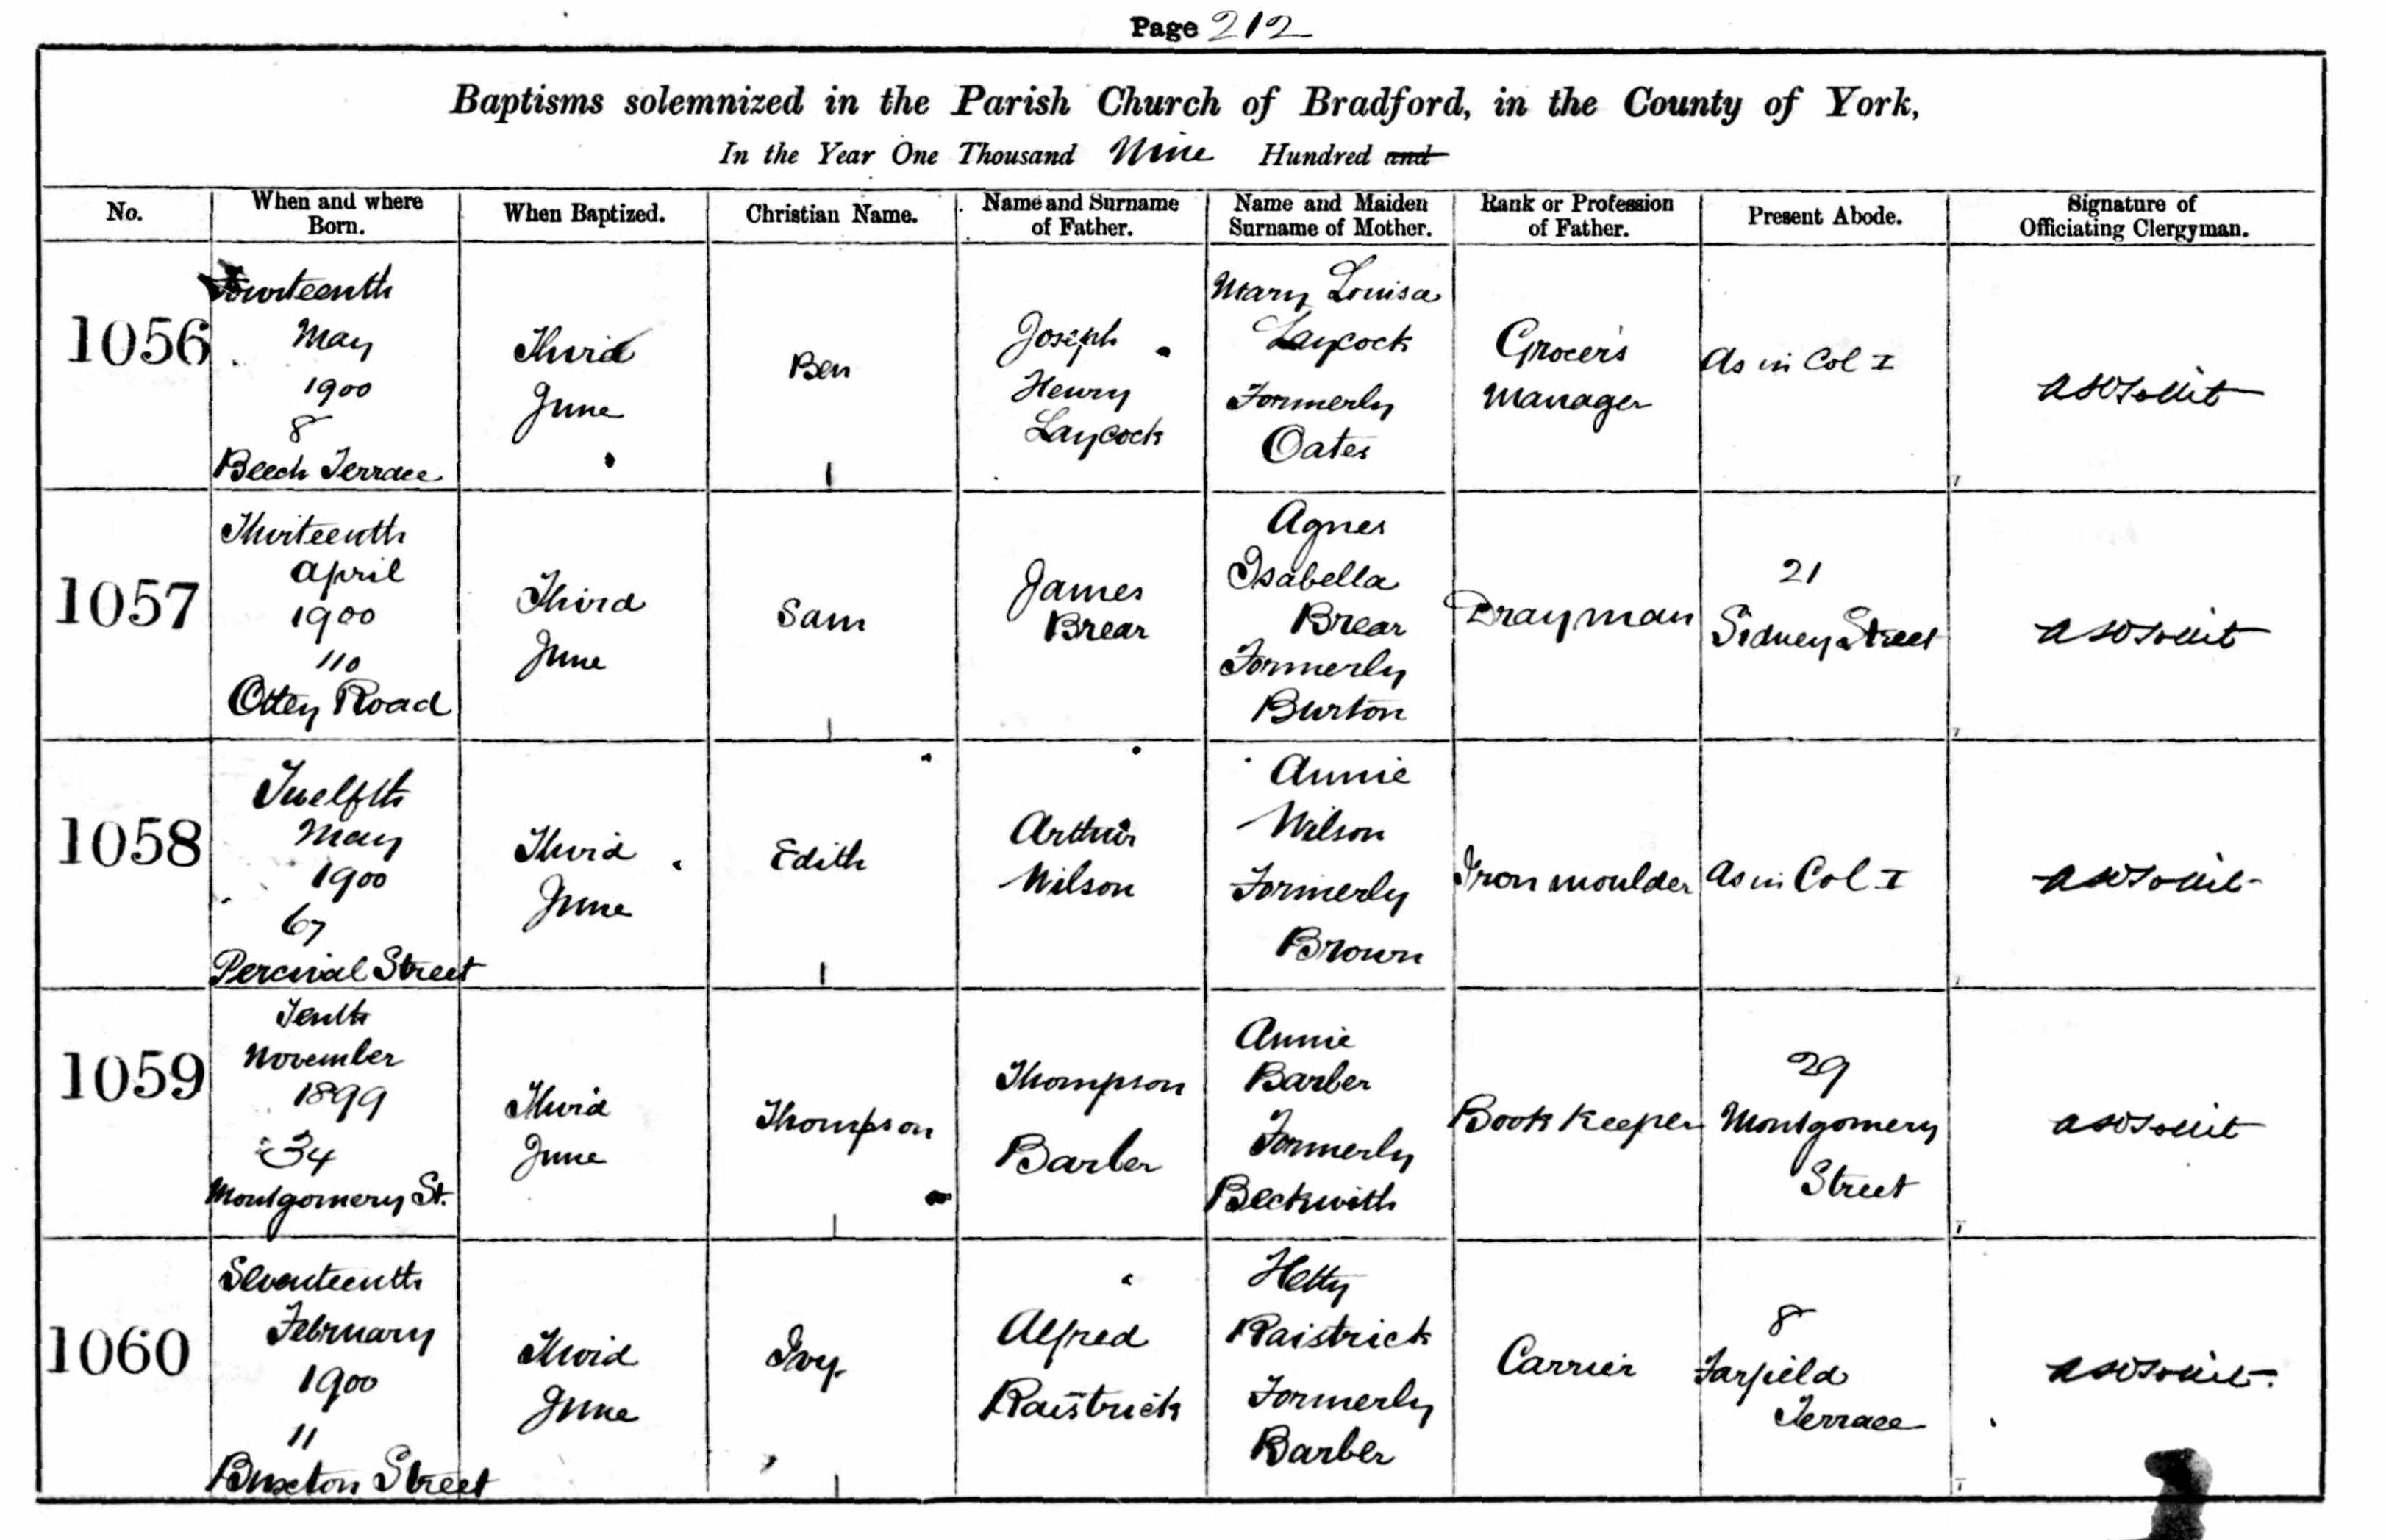 Page 212
Baptisms solemnized in the Parish Church of Bradford, in the County of York,
In the Year One Thousand Nine Hundred and
No.
When and where
Born.
When Baptized.
Christian Name.
Name and Surname
of Father.
Name and Maiden
Surname of Mother.
Rank or Profession
of Father.
Present Abode.
Signature of
Officiating Clergyman.
1056
Fourteenth
May
1900
8
Beech Terrace
Third
June
Ben
Joseph
Henry
Laycock
Mary Louisa
Laycock
Formerly
Oates
Grocer's
Manager
As in Col I
1057
Thirteenth
April
1900
110
Otley Road
Third
June
Sam
James
Brear
Agnes
Isabella
Brear
Formerly
Burton
Drayman
21
Sidney Street
1058
Twelfth
May
1900
67
Percival Street
Third
June
Edith
Arthur
Wilson
Annie
Wilson
Formerly
Brown
Iron moulder
As in Col I
1059
Tenth
November
1899
34
Montgomery St.
Third
June
Thompson
Thompson
Barber
Annie
Barber
Formerly
Beckwith
Book Keeper
29
Montgomery
Street
1060
Seventeenth
February
1900
11
Buxton Street
Third
June
Ivy
Alfred
Raistrick
Hetty
Raistrick
Formerly
Barber
Carrier
8
Farfield
Terrace